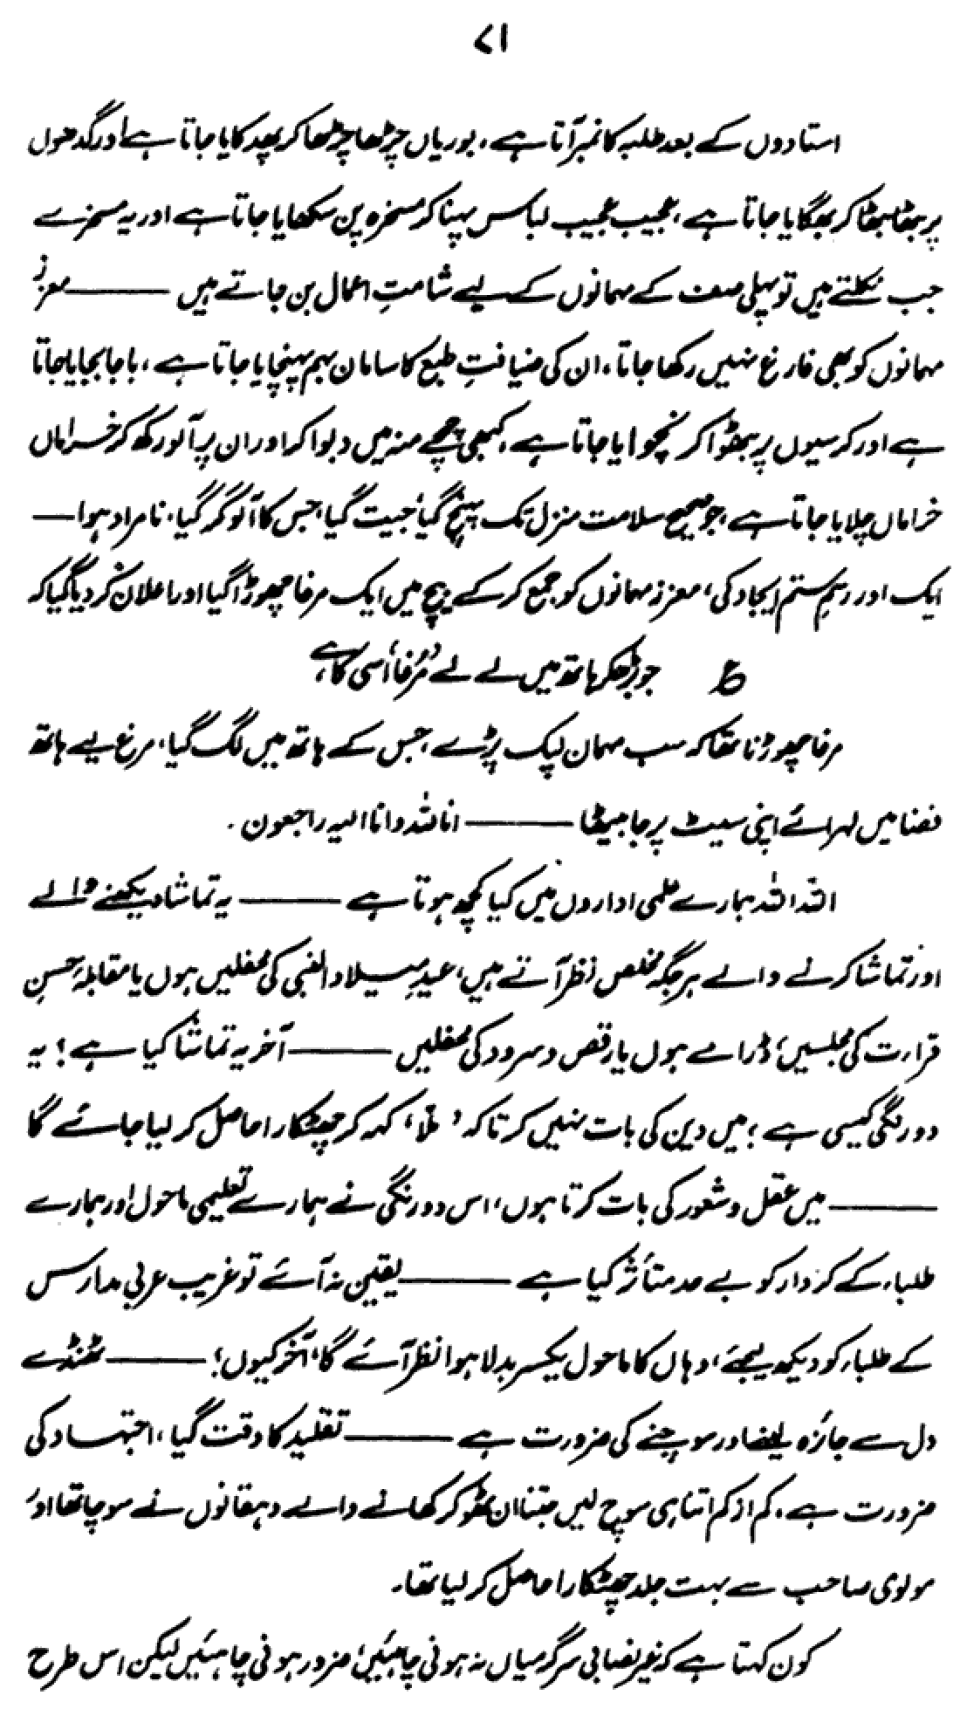 ۷۱
استادوں کے بعد طلبہ کا نمبر آتا ہے، بوریاں چڑھا چڑھا کر پھدکایا جاتا ہے اور گدھوں
پر بٹھا بٹھا کر بھگایا جاتا ہے، عجیب عجیب لباس پہنا کر مسخرہ پن سکھایا جاتا ہے اور یہ مسخرے
جب نکلتے ہیں تو پہلی صف کے مہمانوں کے لیے شامتِ اعمال بن جاتے ہیں ——— معزز
مہمانوں کو بھی فارغ نہیں رکھا جاتا، ان کی ضیافتِ طبع کا سامان بہم پہنچایا جاتا ہے، باجا بجایا جاتا
ہے اور کرسیوں پر جھڑوا کر نچوایا جاتا ہے، کبھی چمچے منہ میں دبوا کر اور ان پر آلو رکھ کر خراماں
خراماں چلایا جاتا ہے، جو صحیح سلامت منزل تک پہنچ گیا، جیت گیا، جس کا آلو گر گیا، نامراد ہوا —
ایک اور رسمِ ستم ایجاد کی، معزز مہمانوں کو جمع کر کے بیچ میں ایک مرغا چھوڑا گیا اور اعلان کر دیا گیا کہ
ع جو بڑھ کر ہاتھ میں لے لے ’مُرغا‘ اُسی کا ہے
مرغا چھوڑنا تھا کہ سب مہمان لپک پڑے، جس کے ہاتھ میں لگ گیا، مرغ لیے ہاتھ
فضا میں لہرائے اپنی سیٹ پر جا بیٹھا ——— انا للہ وانا الیہ راجعون۔
اللہ اللہ ہمارے علمی اداروں میں کیا کچھ ہوتا ہے ——— یہ تماشا دیکھنے والے
اور تماشا کرنے والے ہر جگہ مخلص نظر آتے ہیں، عید میلاد النبی کی محفلیں ہوں یا مقابلۂ حسنِ
قراءت کی مجلسیں، ڈرامے ہوں یا رقص و سرود کی محفلیں ——— آخر یہ تماشا کیا ہے؟ یہ
دورنگی کیسی ہے؟ میں دین کی بات نہیں کرتا کہ ’ملّا‘ کہہ کر چھٹکارا حاصل کر لیا جائے گا
——— میں عقل و شعور کی بات کرتا ہوں، اس دورنگی نے ہمارے تعلیمی ماحول اور ہمارے
طلباء کے کردار کو بے حد متأثر کیا ہے ——— یقین نہ آئے تو غریب عربی مدارس
کے طلباء کو دیکھ لیجئے، وہاں کا ماحول یکسر بدلا ہوا نظر آئے گا، آخر کیوں؟ ——— ٹھنڈے
دل سے جائزہ لینے اور سوچنے کی ضرورت ہے ——— تقلید کا وقت گیا، اجتہاد کی
ضرورت ہے، کم از کم اتنا ہی سوچ لیں جتنا ان ٹھوکر کھانے والے دہقانوں نے سوچا تھا اور
مولوی صاحب سے بہت جلد چھٹکارا حاصل کر لیا تھا۔
کون کہتا ہے کہ غیر نصابی سرگرمیاں نہ ہونی چاہئیں؛ ضرور ہونی چاہئیں لیکن اس طرح